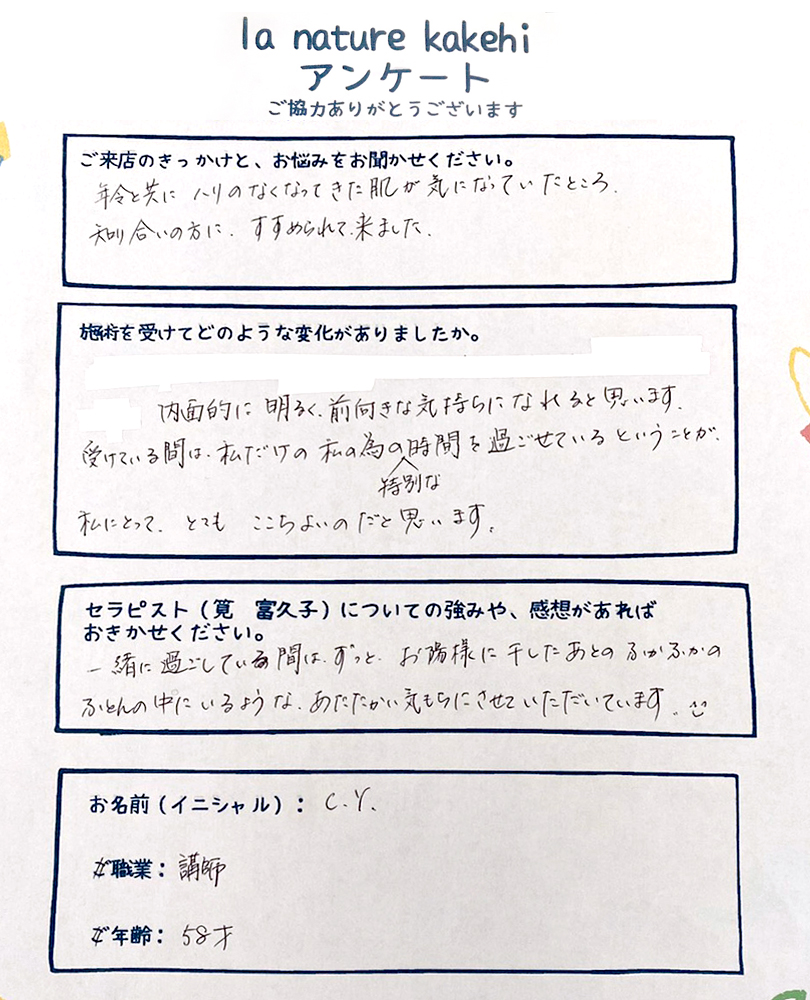 la nature kakehi
アンケート
ご協力ありがとうございます
ご来店のきっかけと、お悩みをお聞かせください。
年令と共に ハリのなくなってきた肌が 気になっていたところ、
知り合いの方に、すすめられて、来ました。
施術を受けてどのような変化がありましたか。
内面的に 明るく、前向きな気持ちになれると思います。
受けている間は、私だけの 私の為の時間を過ごせているということが、
特別な
私にとって、とても ここちよいのだと思います。
セラピスト（筧　富久子）についての強みや、感想があれば
おきかせください。
一緒に過ごしている間は、ずっと、お陽様に干したあとのふかふかの
ふとんの中にいるような、あたたかい気もちにさせていただいています。
お名前（イニシャル）： C.Y.
ご職業： 講師
ご年齢： 58才